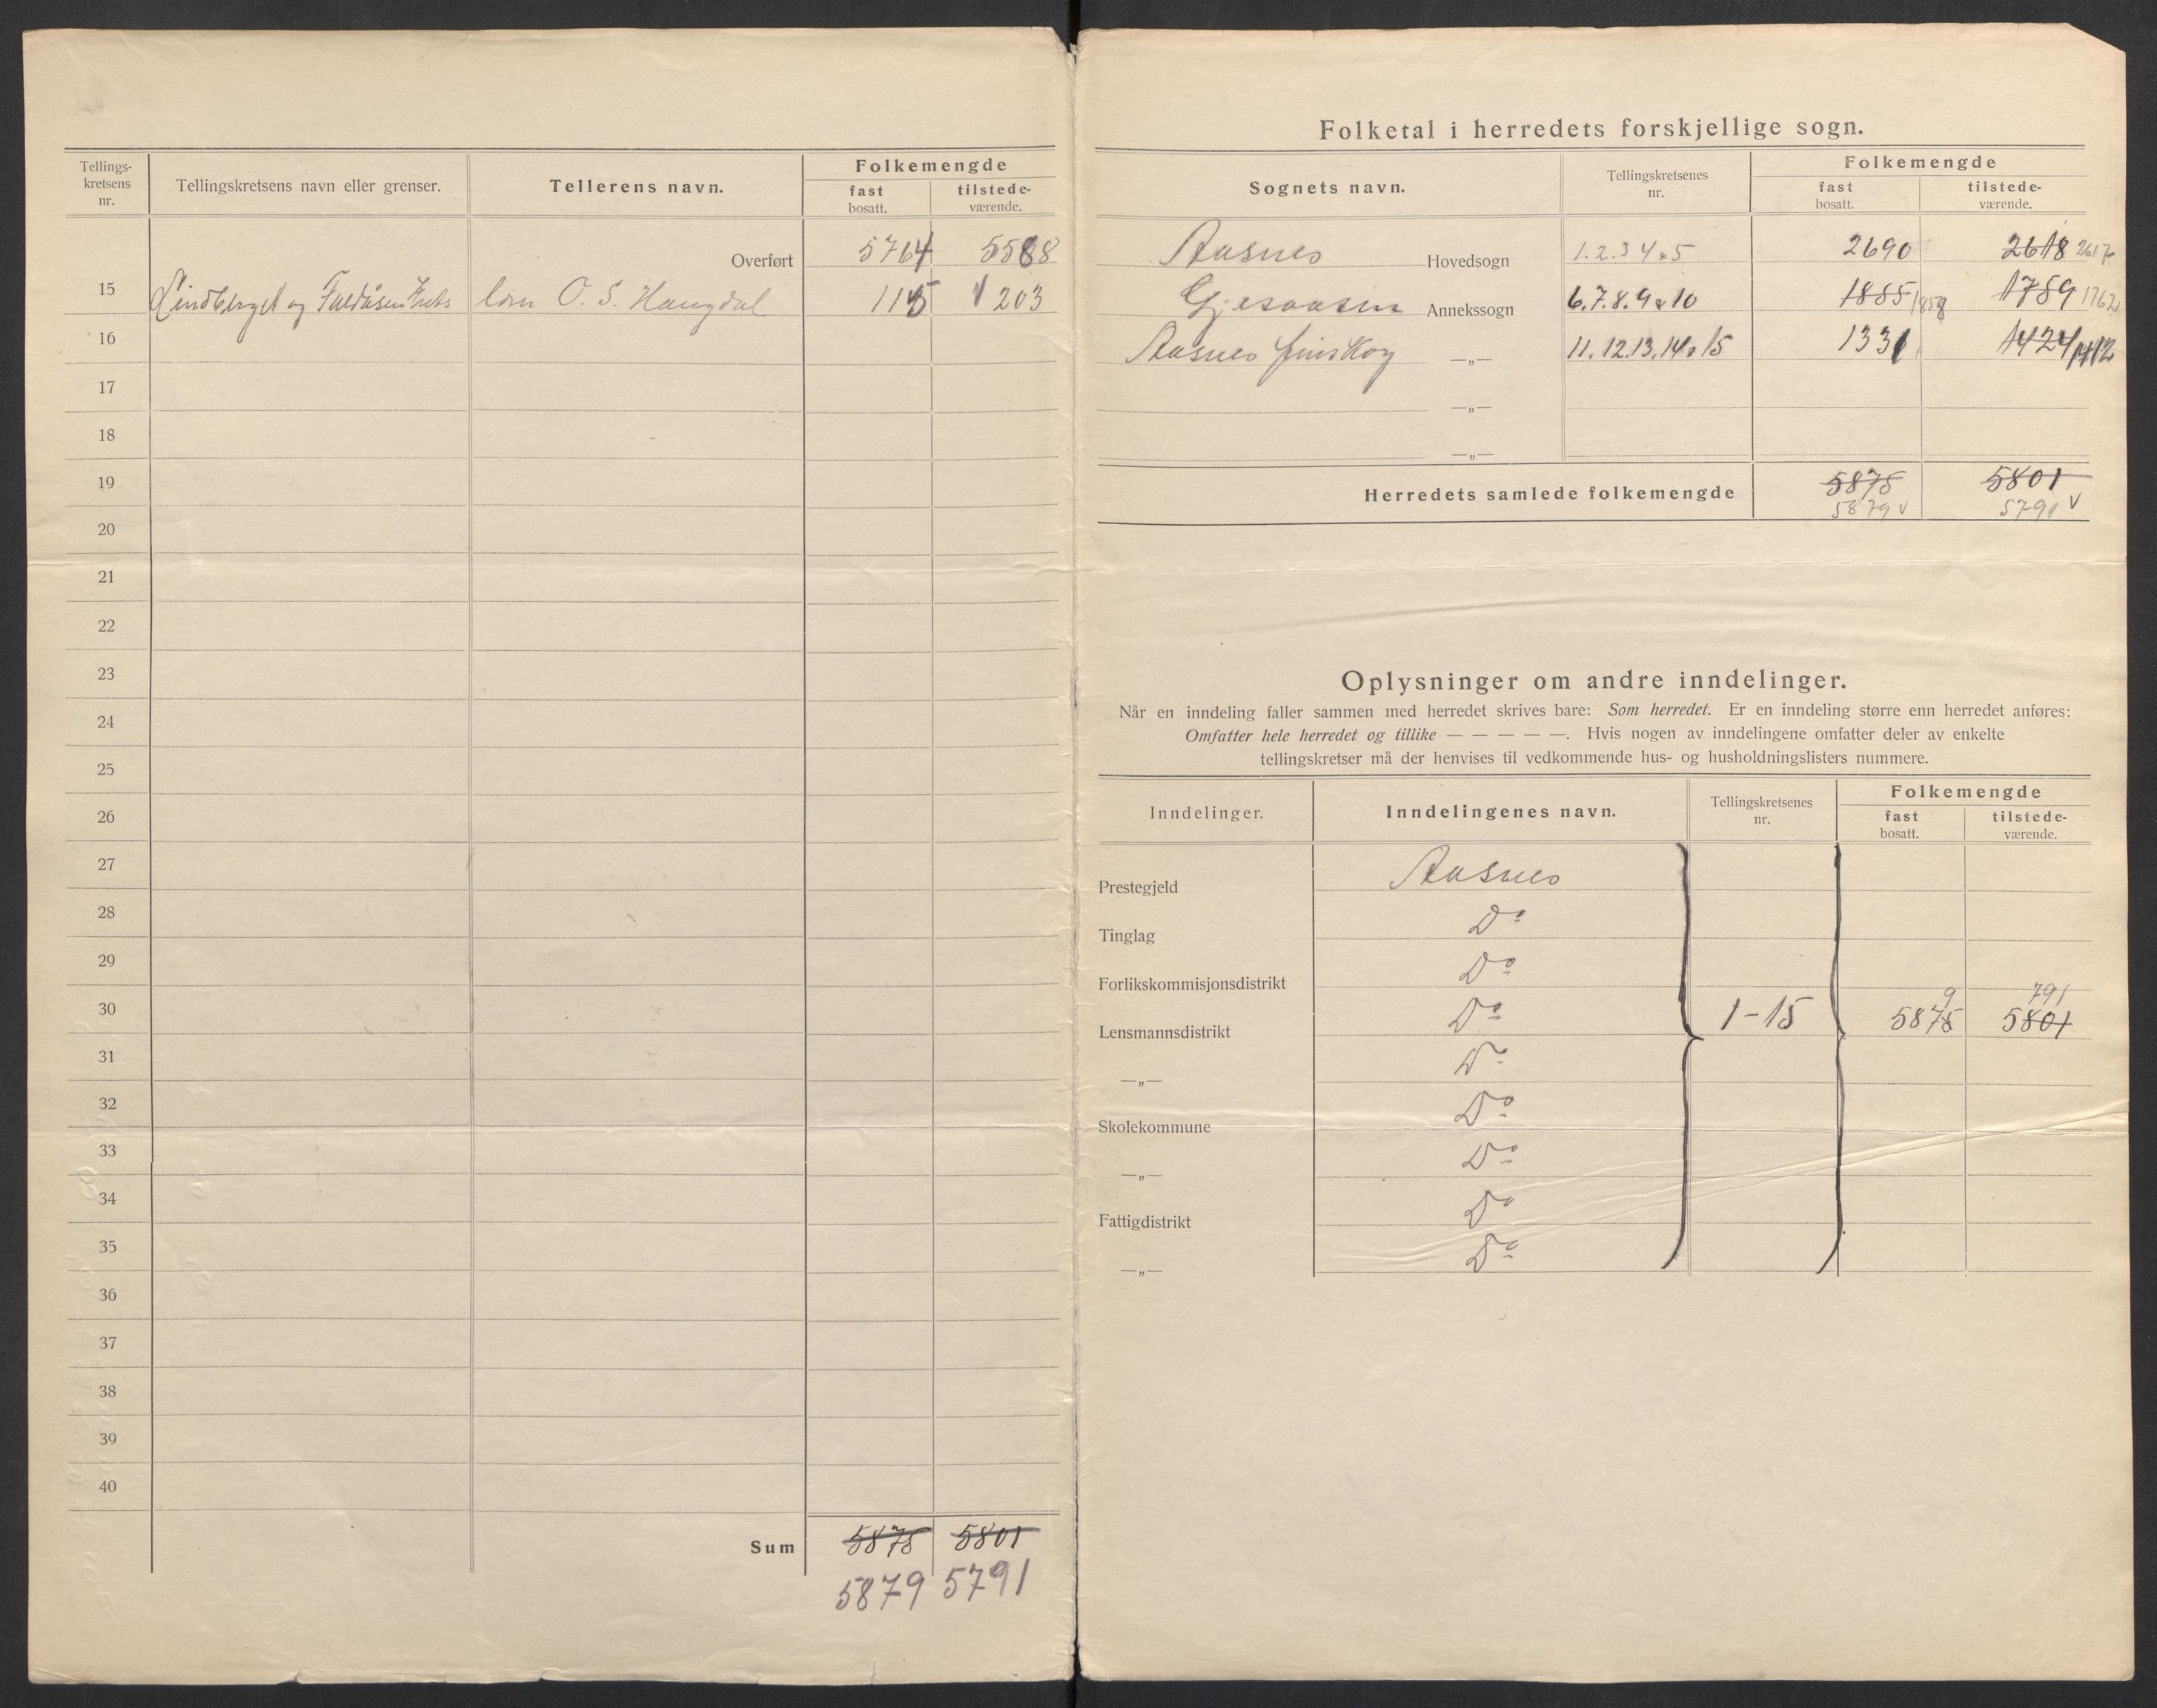 Tellings-
kretsens
nr.
Tellingskretsens navn eller grenser.
Tellerens navn.
Folkemengde
fast
bosatt.
tilstede-
værende.
Overført 5764 5588
15 Lindberget og Faldåsen Kreds O. S. Haugdal 115 203
16
17
18
19
20
21
22
23
24
25
26
27
28
29
30
31
32
33
34
35
36
37
38
39
40
Sum 5875 5801
5879 5791
Folketal i herredets forskjellige sogn.
Sognets navn.
Tellingskretsenes
nr.
Folkemengde
fast
bosatt.
tilstede-
værende.
Aasnes Hovedsogn 1.2.3 4 & 5 2690 2618 2617
Gjesaasen Annekssogn 6.7.8.9 & 10 1855 1858 1759 1762
Aasnes finskog —„— 11.12.13.14 & 15 1331 1424 1412
—„—
—„—
Herredets samlede folkemengde 5875 5801
5879 v 5791 v
Oplysninger om andre inndelinger.
Når en inndeling faller sammen med herredet skrives bare: Som herredet. Er en inndeling større enn herredet anføres:
Omfatter hele herredet og tillike — — — — —. Hvis nogen av inndelingene omfatter deler av enkelte
tellingskretser må der henvises til vedkommende hus- og husholdningslisters nummere.
Inndelinger.
Inndelingenes navn.
Tellingskretsenes
nr.
Folkemengde
fast
bosatt.
tilstede-
værende.
Prestegjeld Aasnes
Tinglag Do
Forlikskommisjonsdistrikt Do
9 791
Lensmannsdistrikt Do 1-15 5875 5801
—„— Do
Skolekommune Do
—„— Do
Fattigdistrikt Do
—„— Do